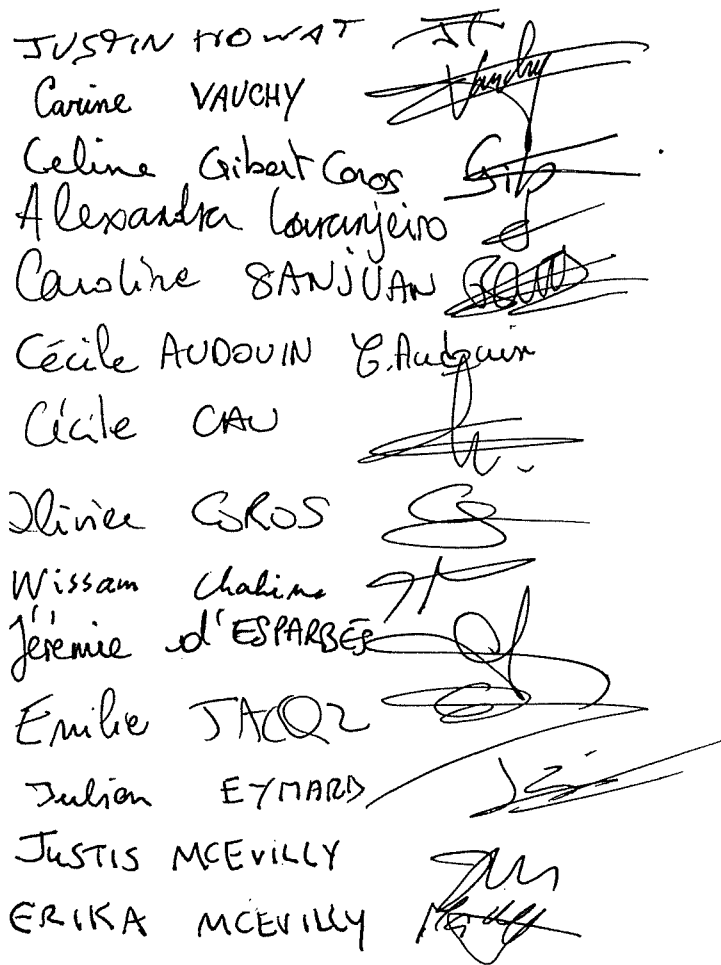 JUSTIN HOWAT
Carine VAUCHY
Celine Gibert Coros
Alexandra Laranjeiro
Caroline SANJUAN
Cécile AUDOUIN C.Audouin
Cécile CAU
Olivier COROS
Wissam Chahine
Jérémie d'ESPARBÈS
Emilie JACQZ
Julien EYMARD
JUSTIS MCEVILLY
ERIKA MCEVILLY